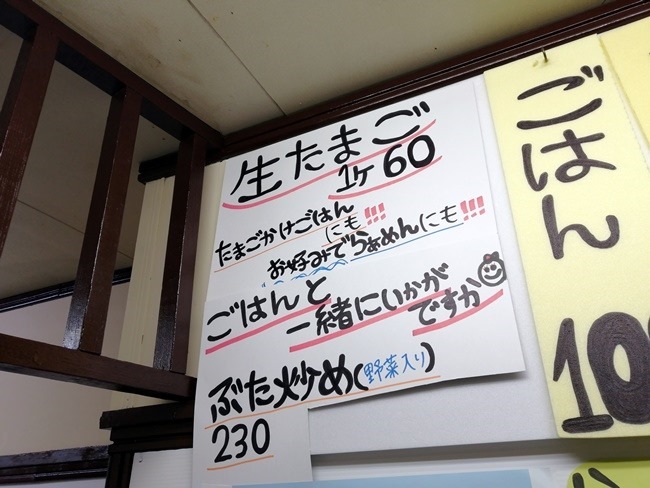 生たまご
1ケ 60
たまごかけごはん
にも!!!
お好みでらぁめんにも!!!
ごはんと
一緒にいかが
ですか
ぶた炒め(野菜入り)
230
ごはん
10